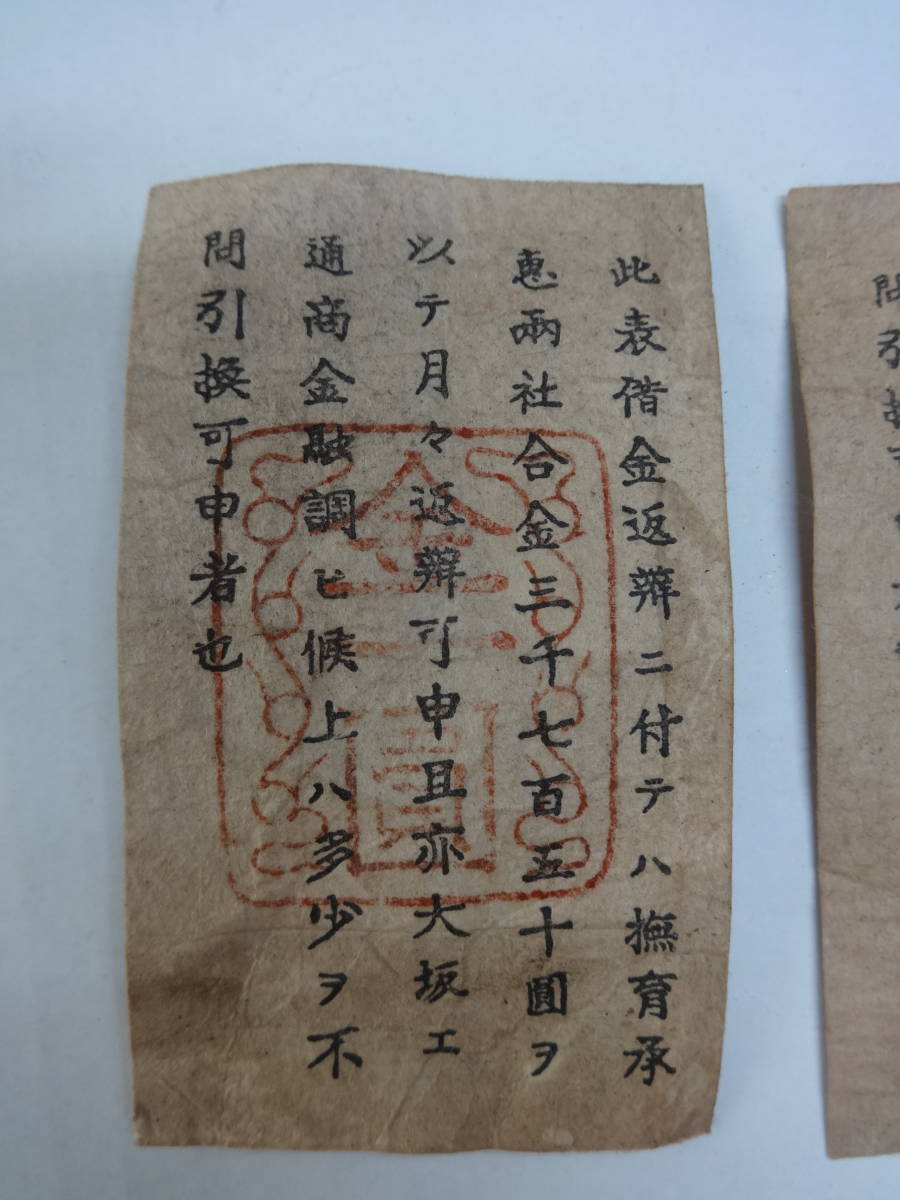 此表借金返辨ニ付テハ撫育承
惠兩社合金三千七百五十圓ヲ
以テ月々返辨可申且亦大坂エ
通商金融調ヒ候上ハ多少ヲ不
問引換可申者也
金
圓